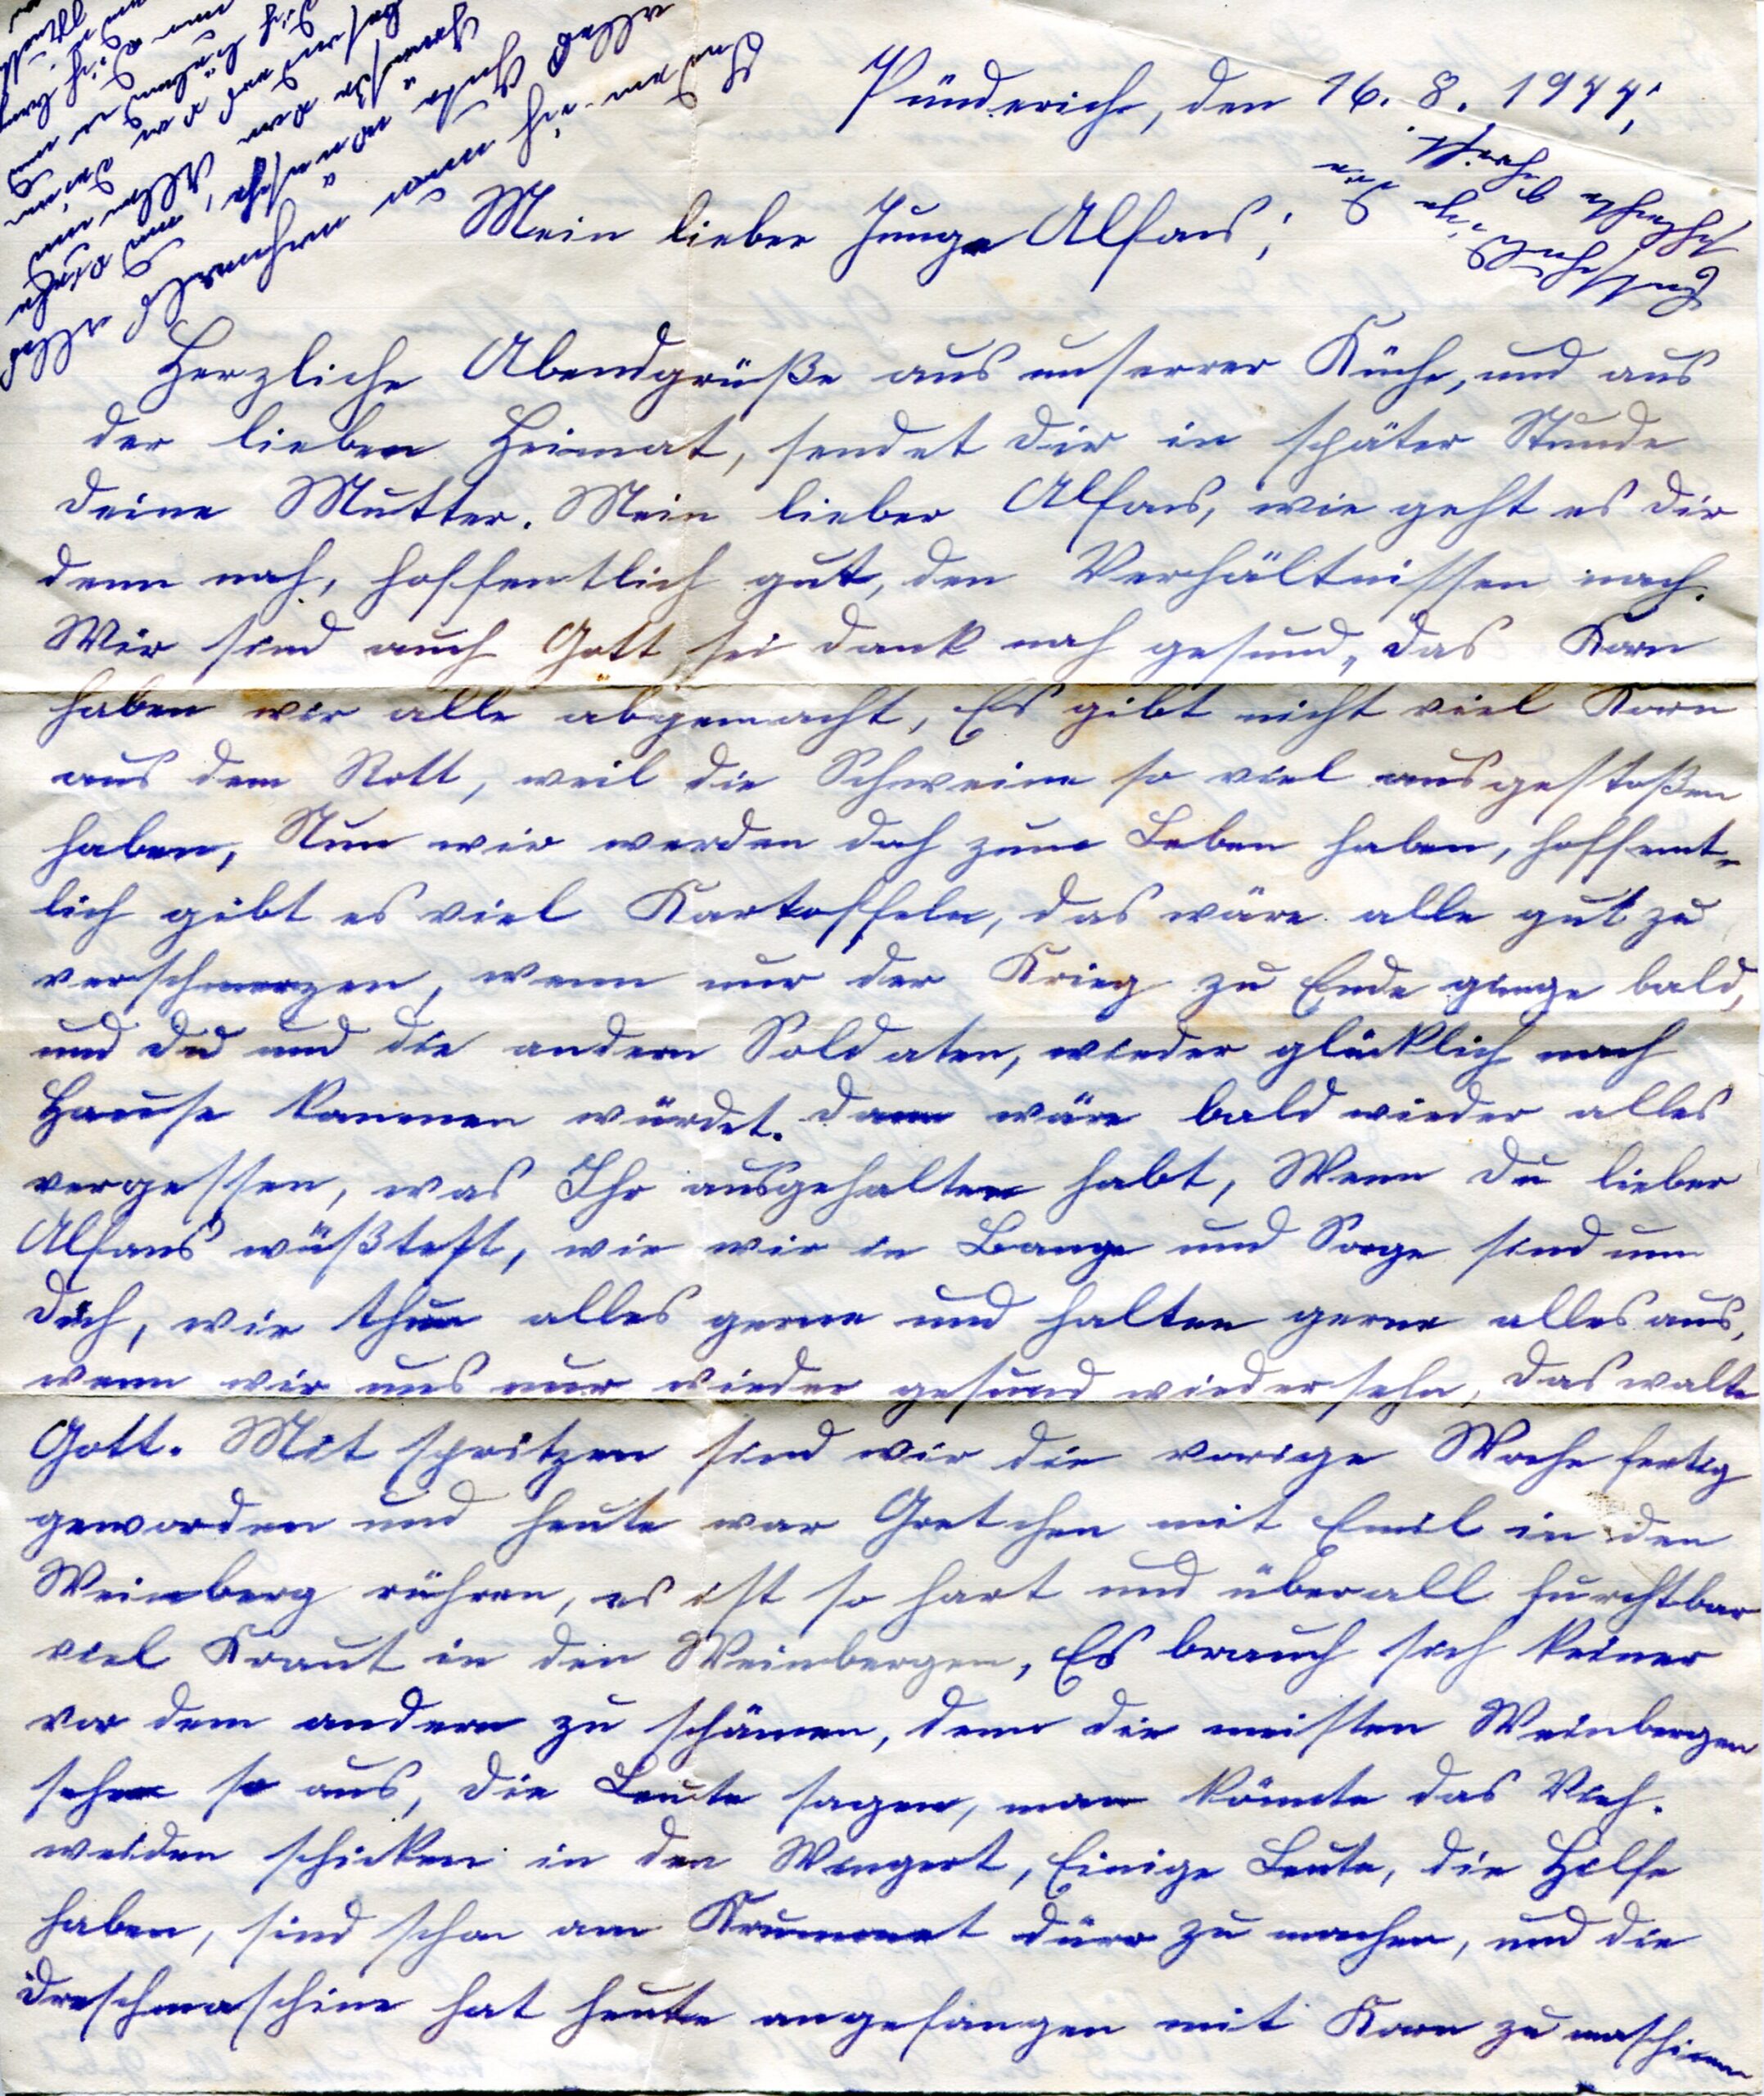 Pünderich, den 16. 8. 1944;
Mein lieber Junge Alfons;
Herzliche Abendgrüße aus unserer Küche, und aus
der lieben Heimat, sendet dir in später Stunde
deine Mutter. Mein lieber Alfons, wie geht es dir
denn noch, hoffentlich gut, den Verhältnissen nach.
Wir sind auch Gott sei dank noch gesund, das Korn
haben wir alle abgemacht, Es gibt nicht viel Korn
aus dem Rott, weil die Schweine so viel ausgestoßen
haben, Nun wir werden doch zum Leben haben, hoffent-
lich gibt es viel Kartoffeln, das wäre alle gut zu
verschmerzen, wenn nur der Krieg zu Ende ginge bald,
und du und die andern Soldaten, wieder glücklich nach
Hause kommen würdet. dann wäre bald wieder alles
vergessen, was Ihr ausgehalten habt, Wenn du lieber
Alfons wüßtest, wie wir in Bange und Sorge sind um
dich, wir thun alles gerne und halten gerne alles aus,
wenn wir uns nur wieder gesund wiedersehn, das walte
Gott. Mit spritzen sind wir die vorige Woche fertig
geworden und heute war Gretchen mit Emil in den
Weinberg rühren, es ist so hart und überall furchtbar
viel Kraut in den Weinbergen, Es brauch sich keiner
vor dem andern zu schämen, denn die meisten Weinbergen
sehen so aus, die Leute sagen, man könnte das Vieh.
weiden schicken in den Wingert, Einige Leute, die Hilfe
haben, sind schon am Krummet dürr zu machen, und die
Dreschmaschine hat heute angefangen mit Korn zu maschinen